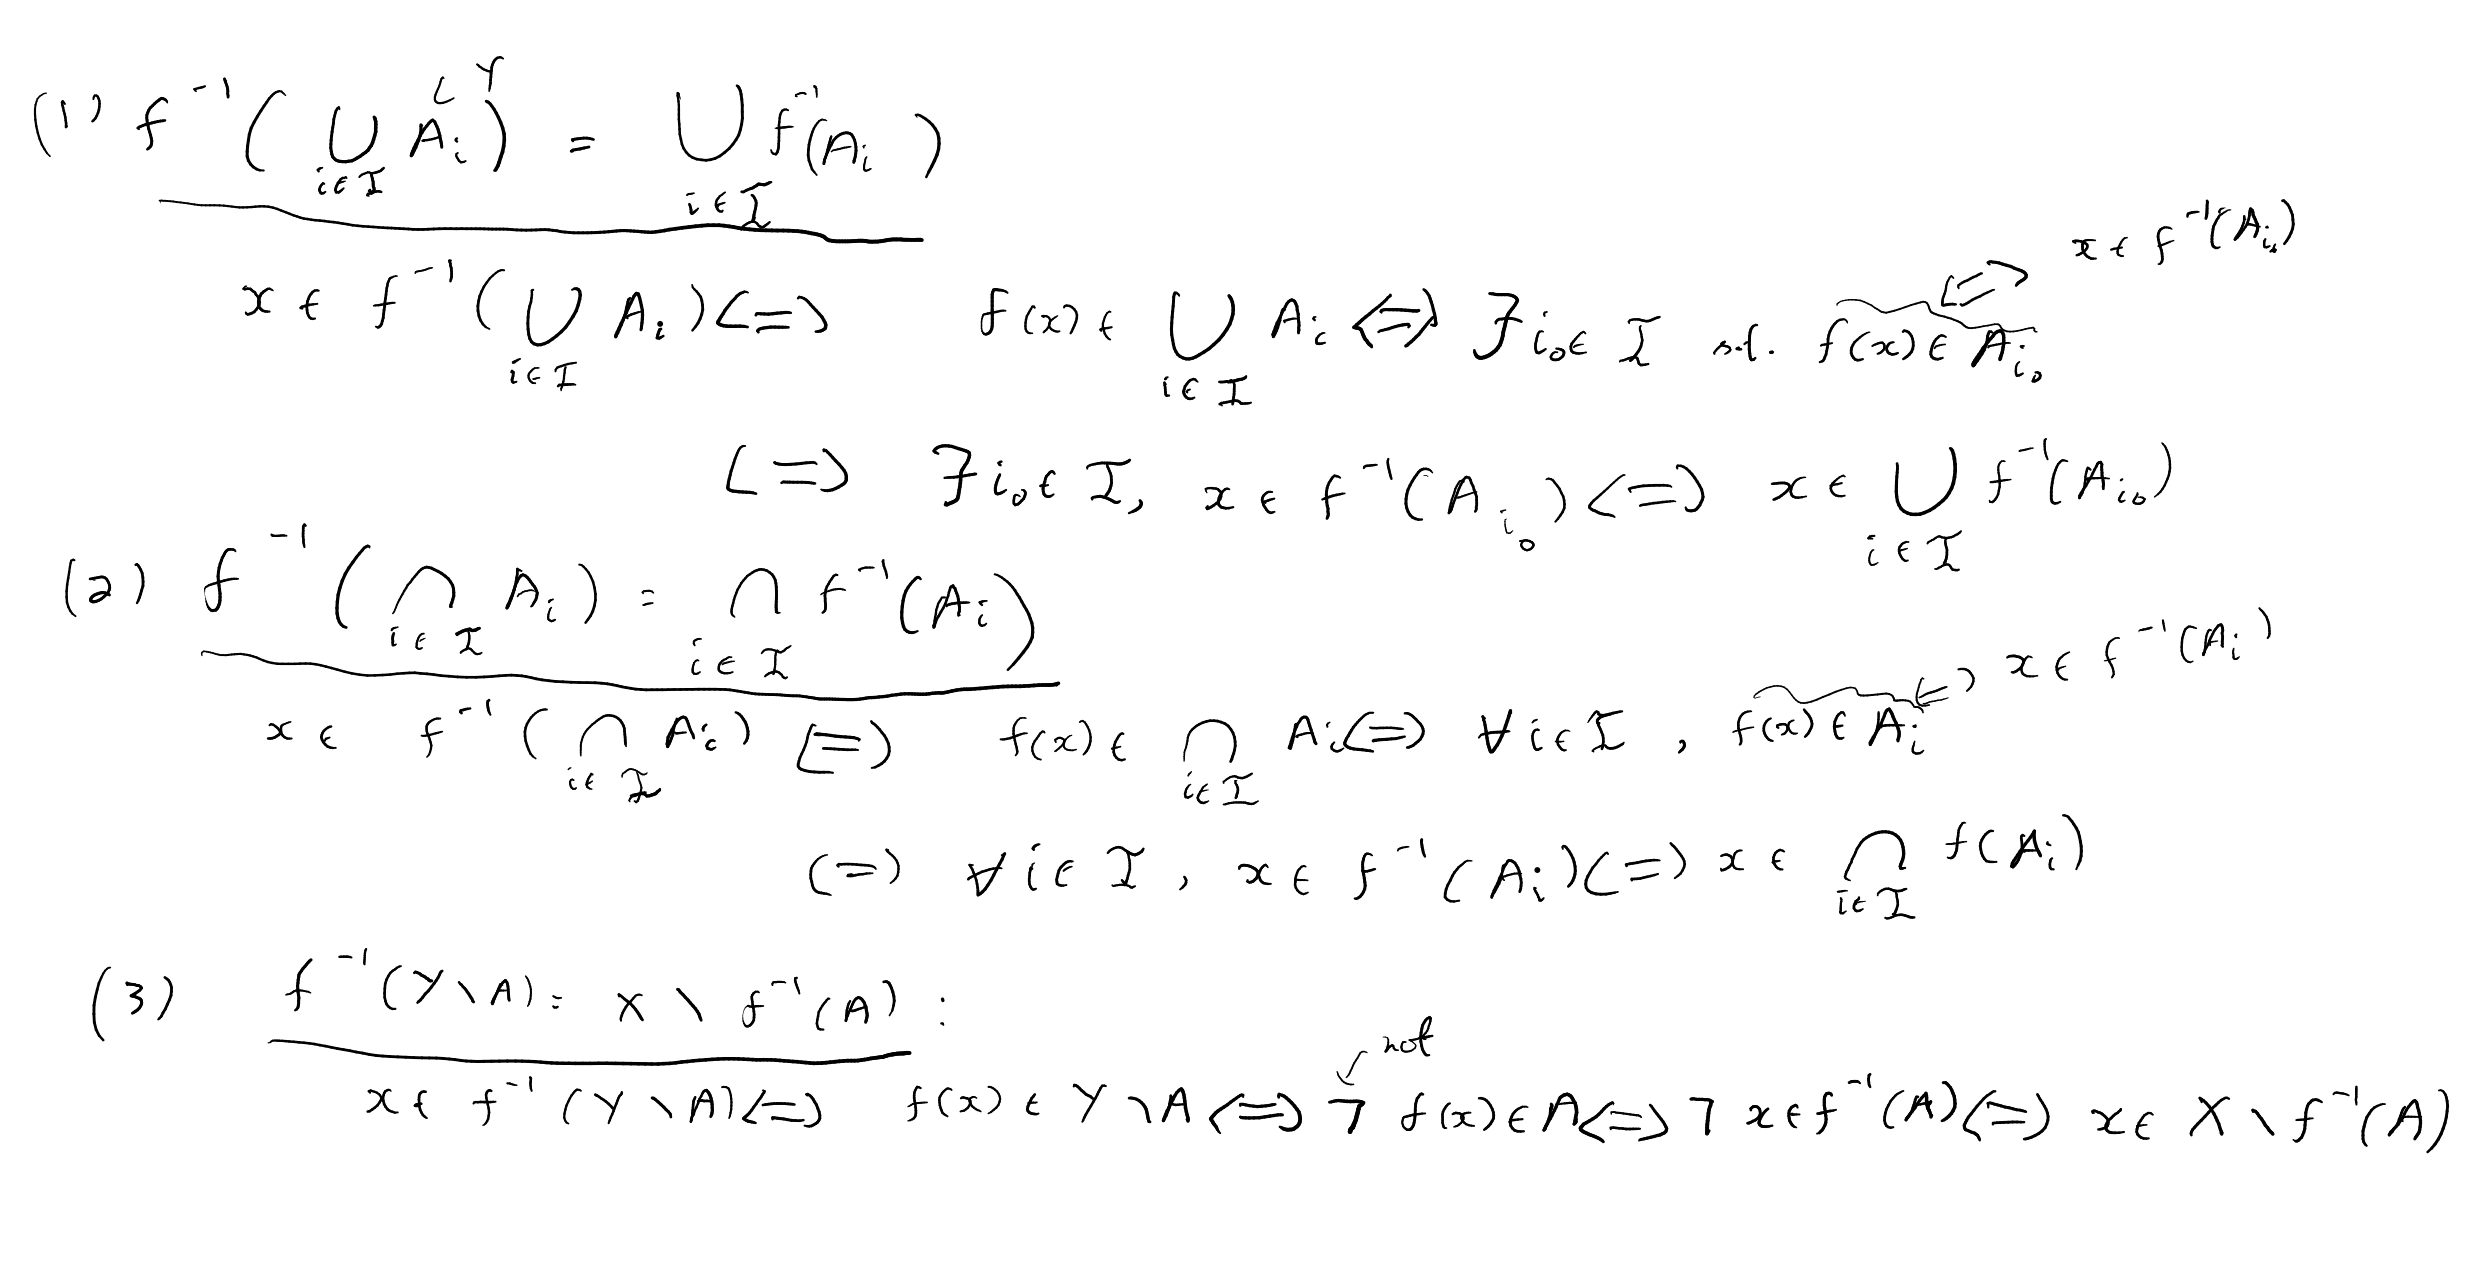 (1) f⁻¹( ⋃_{i∈I} A_i ) = ⋃_{i∈I} f⁻¹(A_i)
⊂ Y
x ∈ f⁻¹( ⋃_{i∈I} A_i ) <=> f(x) ∈ ⋃_{i∈I} A_i <=> ∃ i₀ ∈ I s.t. f(x) ∈ A_{i₀} <=> x ∈ f⁻¹(A_{i₀})
<=> ∃ i₀ ∈ I, x ∈ f⁻¹(A_{i₀}) <=> x ∈ ⋃_{i∈I} f⁻¹(A_{i₀})
(2) f⁻¹( ⋂_{i∈I} A_i ) = ⋂_{i∈I} f⁻¹(A_i)
x ∈ f⁻¹( ⋂_{i∈I} A_i ) <=> f(x) ∈ ⋂_{i∈I} A_i <=> ∀ i ∈ I, f(x) ∈ A_i <=> x ∈ f⁻¹(A_i)
<=> ∀ i ∈ I, x ∈ f⁻¹(A_i) <=> x ∈ ⋂_{i∈I} f(A_i)
(3) f⁻¹(Y \ A) = X \ f⁻¹(A) :
not
x ∈ f⁻¹(Y \ A) <=> f(x) ∈ Y \ A <=> ¬ f(x) ∈ A <=> ¬ x ∈ f⁻¹(A) <=> x ∈ X \ f⁻¹(A)